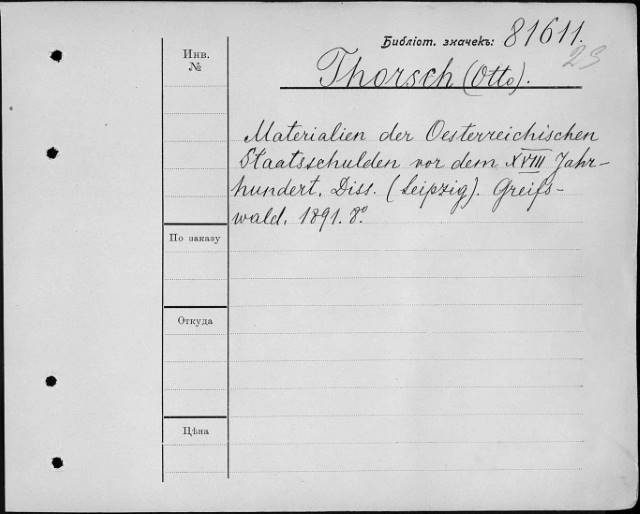 Библіот. значекъ: 81611.
23
Инв.
№
Thorsch (Otto).
Materialien der Oesterreichischen
Staatsschulden vor dem XVIII Jahr-
hundert. Diss. (Leipzig). Greifs-
wald. 1891. 8°.
По заказу
Откуда
Цѣна